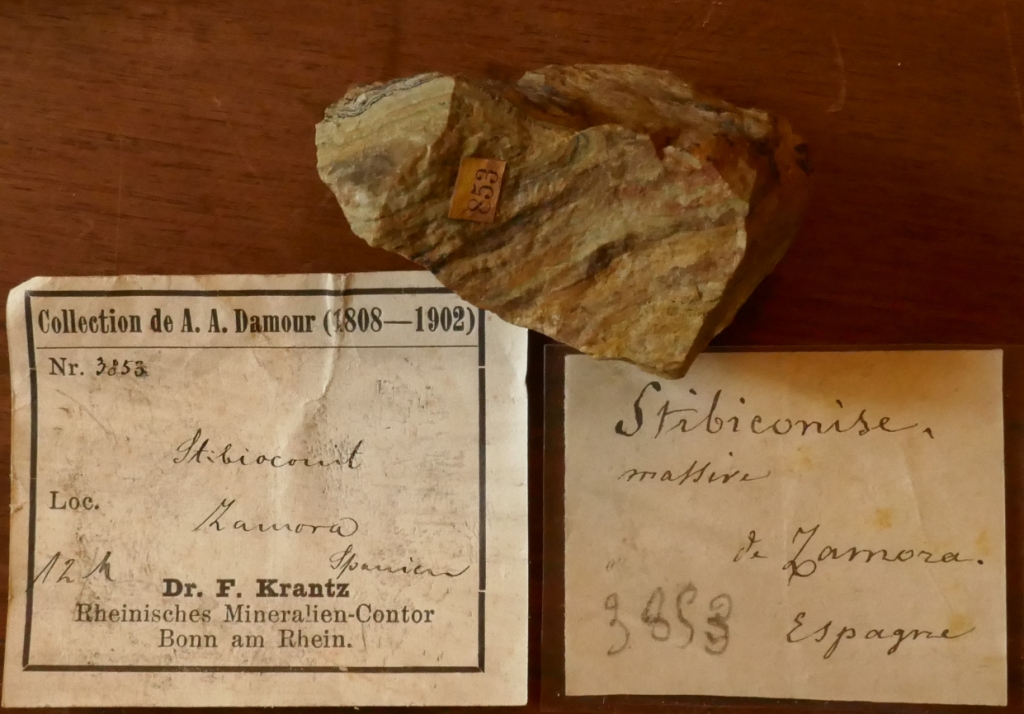 853
Collection de A. A. Damour (1808—1902)
Nr. 3853
Stibioconit
Loc.
Zamora
Spanien
12 M
Dr. F. Krantz
Rheinisches Mineralien-Contor
Bonn am Rhein.
Stibiconise.
massive
de Zamora.
3853
Espagne